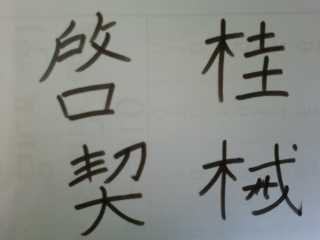 啓 桂
契 械